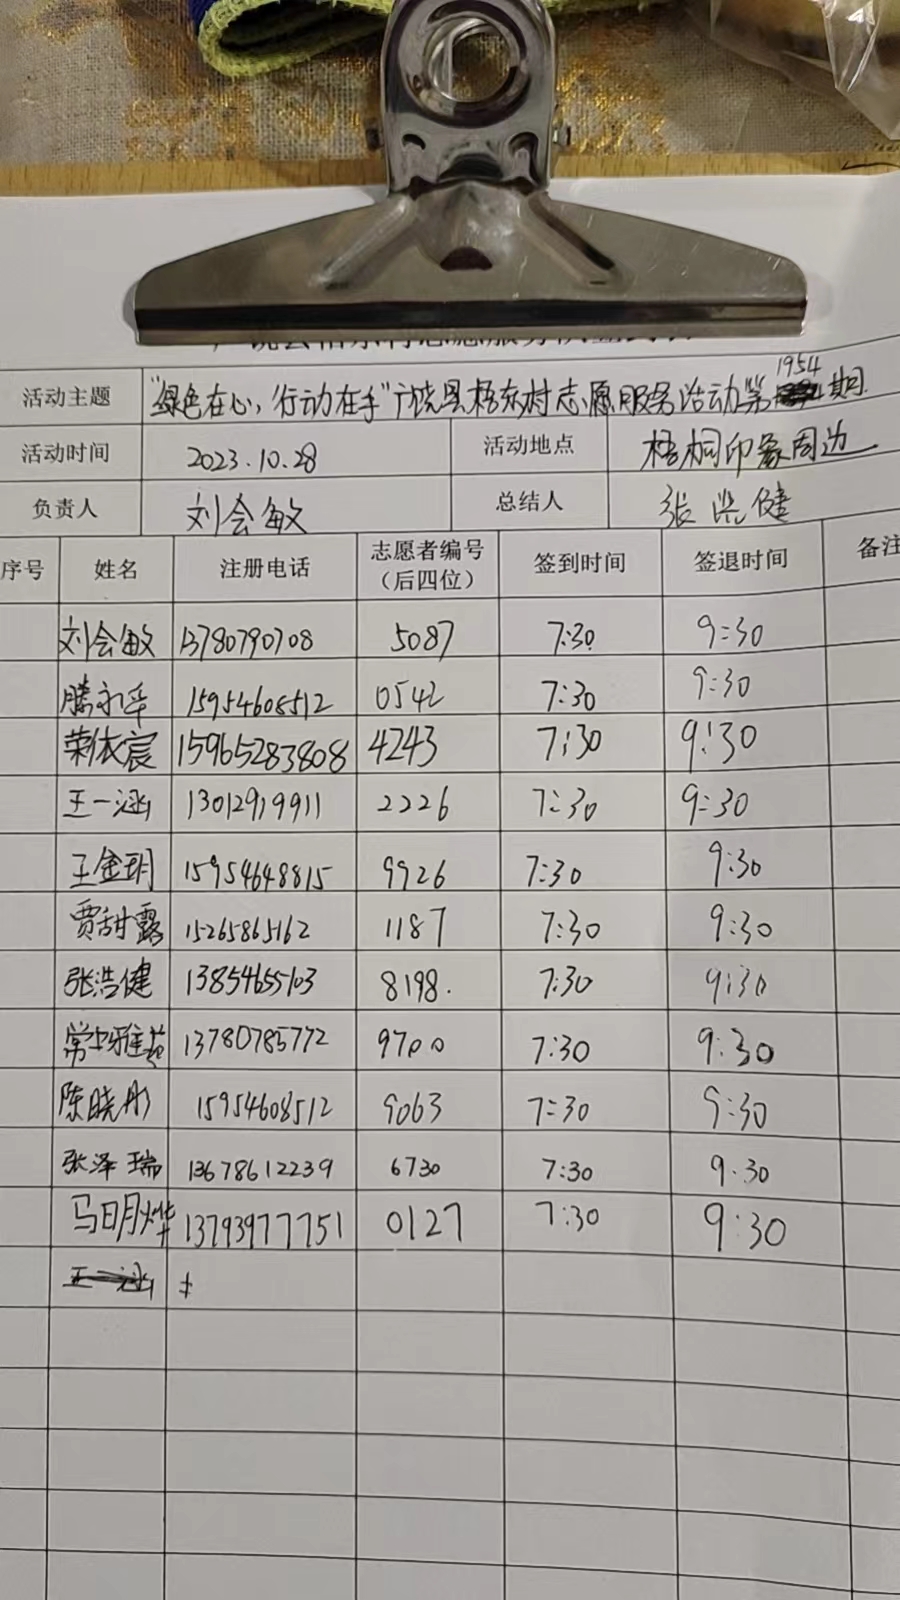 活动主题 "绿色在心,行动在手"广饶县梧东村志愿服务活动第1954期
活动时间 2023.10.28 活动地点 梧桐印象周边
负责人 刘会敏 总结人 张浩健
序号 姓名 注册电话 志愿者编号(后四位) 签到时间 签退时间 备注
刘会敏 13780790708 5087 7:30 9:30
滕永华 15954608512 0542 7:30 9:30
荣依宸 15965283808 4243 7:30 9:30
王一涵 13012919911 2226 7:30 9:30
王金玥 15954648815 9926 7:30 9:30
贾甜露 15265865162 1187 7:30 9:30
张浩健 13854655103 8198. 7:30 9:30
常雅芸 13780785772 9700 7:30 9:30
陈晓彤 15954608512 9063 7:30 9:30
张泽瑞 13678612239 6730 7:30 9.30
马明烨 13793977751 0127 7:30 9:30
王一涵